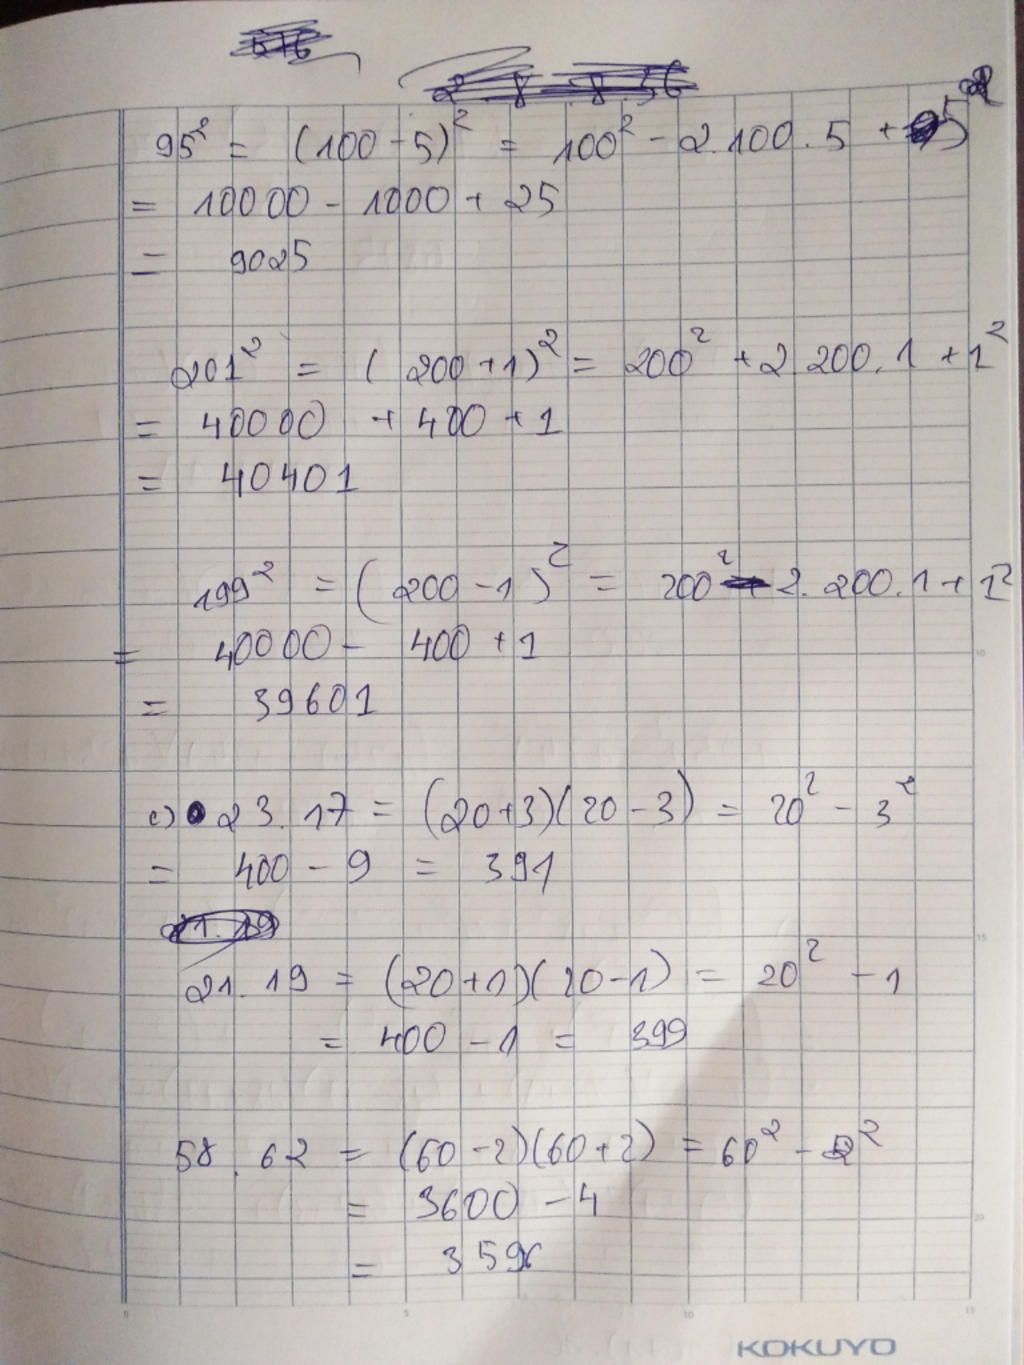 95² = (100 - 5)² = 100² - 2.100.5 + 5²
= 10000 - 1000 + 25
= 9025
201² = (200 + 1)² = 200² + 2 200.1 + 1²
= 40000 + 400 + 1
= 40401
199² = (200 - 1)² = 200² - 2.200.1 + 1²
= 40000 - 400 + 1
= 39601
c) 23.17 = (20+3)(20-3) = 20² - 3²
= 400 - 9 = 391
21.19
21.19 = (20+1)(20-1) = 20² - 1
= 400 - 1 = 399
58.62 = (60-2)(60+2) = 60² - 2²
= 3600 - 4
= 3596
KOKUYO